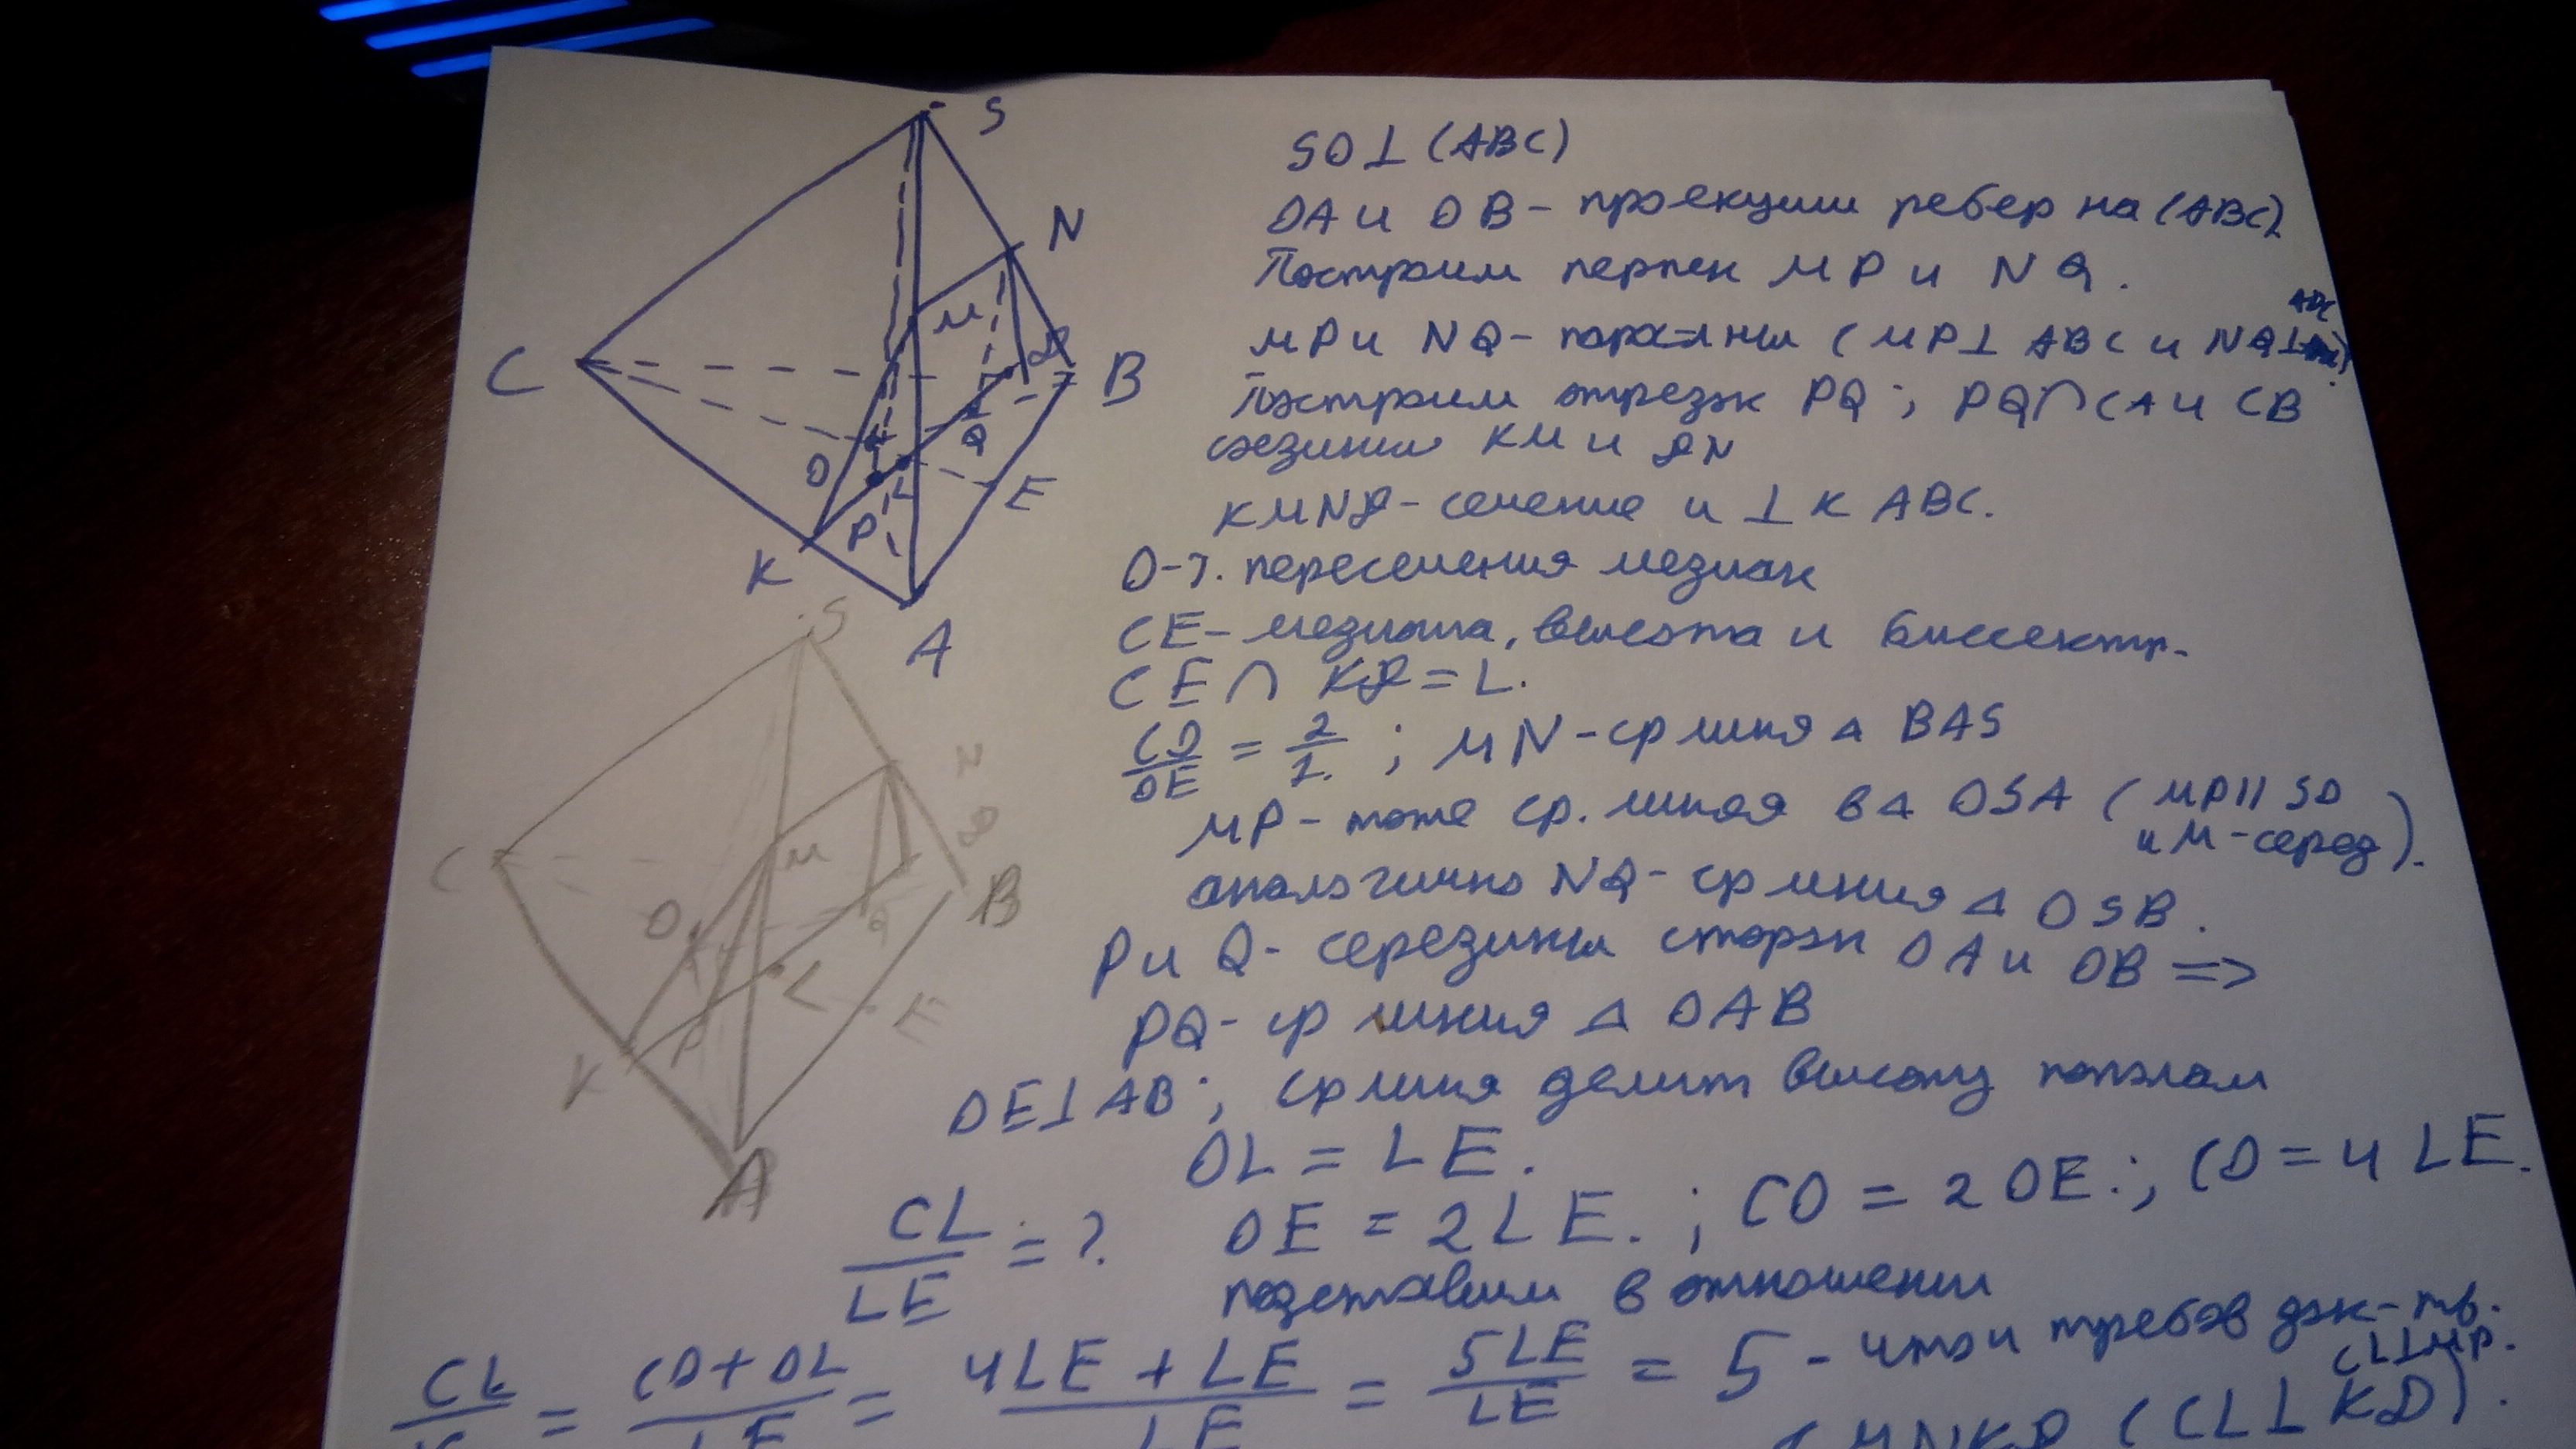 S
N
M
C
B
Q
O
L
E
P
K
A
S
N
M
C
B
O
Q
L
E
P
K
A
SO⊥(ABC)
OA и OB - проекции ребер на (ABC)
Построим перпен MP и NQ.
MP и NQ - пара-лны (MP⊥ABC и NQ⊥ ABC)
Построим отрезок PQ; PQ∩CA и CB
соединим KM и DN
KMND - сечение и ⊥ к ABC.
O-т. пересечения медиан
CE - медиана, высота и биссектр.
CE∩KD=L.
CO/OE = 2/1.; MN - ср линия △ BAS
MP - тоже ср. линия в △ OSA (MP||SO и M-серед).
аналогично NQ - ср линия △ OSB.
P и Q - середины сторон OA и OB =>
PQ - ср линия △ OAB
OE⊥AB; ср линия делит высоту пополам
OL = LE.
CL/LE = ? OE = 2LE.; CO = 2OE.; CO = 4LE.
подставим в отношении
CL/ = CO+OL/LE = 4LE+LE/LE = 5LE/LE = 5 - что и требов док-ть.
CL⊥MP.
MNKD (CL⊥KD).